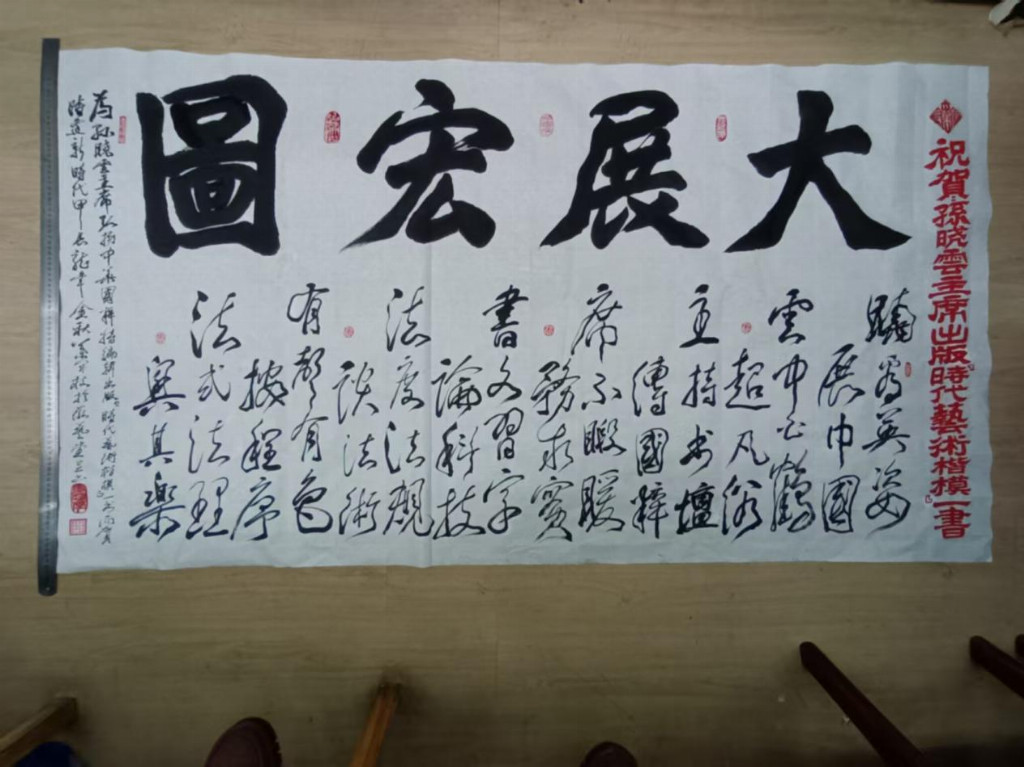 祝賀孫晓雲主席出版『時代藝術楷模』一書
大展宏圖
曉為英姿
展巾國
雲中白鶴
超凡俗
主持书壇
傳國粹
席不暇暖
務求實
書文習字
論科技
法度法規
談法術
有聲有色
按程序
法式法理
興其樂
為孫曉雲主席弘揚中華國粹特编辑出版『時代藝術楷模』一书而賀
新時代甲辰龍年金秋